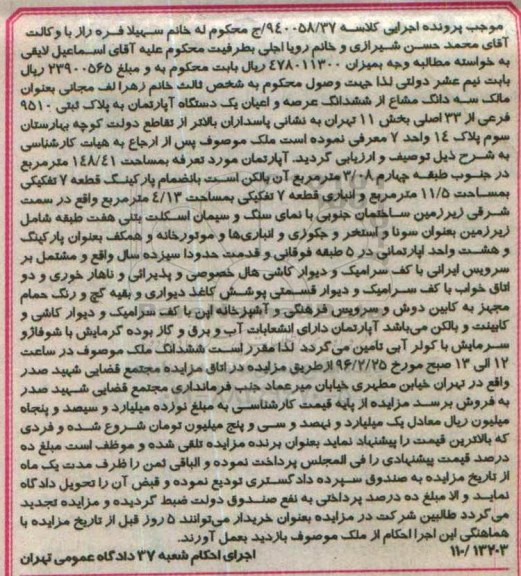 موجب پرونده اجرایی کلاسه ۹۴۰۰۵۸/۳۷/ج محکوم له خانم سهیلا فره راز با وکالت
آقای محمد حسن شیرازی و خانم رویا اجلی بطرفیت محکوم علیه آقای اسماعیل لایقی
به خواسته مطالبه وجه بمیزان ۴۷۸۰۱۱۳۰۰ ریال بابت محکوم به و مبلغ ۲۳۹۰۰۵۶۵ ریال
بابت نیم عشر دولتی لذا جهت وصول محکوم به شخص ثالث خانم زهرا لف مجانی بعنوان
مالک سه دانگ مشاع از ششدانگ عرصه و اعیان یک دستگاه آپارتمان به پلاک ثبتی ۹۵۱۰
فرعی از ۳۳ اصلی بخش ۱۱ تهران به نشانی پاسداران بالاتر از تقاطع دولت کوچه بهارستان
سوم پلاک ۱۴ واحد ۷ معرفی نموده است ملک موصوف پس از ارجاع به هیات کارشناسی
به شرح ذیل توصیف و ارزیابی گردید. آپارتمان مورد تعرفه بمساحت ۱۴۸/۴۱ مترمربع
در جنوب طبقه چهارم ۳/۰۸ مترمربع آن بالکن است بانضمام پارکینگ قطعه ۷ تفکیکی
بمساحت ۱۱/۵ مترمربع و انباری قطعه ۷ تفکیکی بمساحت ۴/۱۳ مترمربع واقع در سمت
شرقی زیرزمین ساختمان جنوبی با نمای سنگ و سیمان اسکلت بتنی هفت طبقه شامل
زیرزمین بعنوان سونا و استخر و جکوزی و انباری‌ها و موتورخانه و همکف بعنوان پارکینگ
و هشت واحد آپارتمانی در ۵ طبقه فوقانی و قدمت حدودا سیزده سال واقع و مشتمل بر
سرویس ایرانی با کف سرامیک و دیوار کاشی هال خصوصی و پذیرائی و ناهار خوری و دو
اتاق خواب با کف سرامیک و دیوار قسمتی پوشش کاغذ دیواری و بقیه گچ و رنگ حمام
مجهز به کابین دوش و سرویس فرهنگی و آشپزخانه اپن با کف سرامیک و دیوار کاشی و
کابینت و بالکن می‌باشد آپارتمان دارای انشعابات آب و برق و گاز بوده گرمایش با شوفاژ و
سرمایش با کولر آبی تامین می‌گردد لذا مقرر است ششدانگ ملک موصوف در ساعت
۱۲ الی ۱۳ صبح مورخ ۹۶/۲/۲۵ ازطریق مزایده در اتاق مزایده مجتمع قضایی شهید صدر
واقع در تهران خیابان مطهری خیابان میرعماد جنب فرمانداری مجتمع قضایی شهید صدر
به فروش برسد مزایده از پایه قیمت کارشناسی به مبلغ نوزده میلیارد و سیصد و پنجاه
میلیون ریال معادل یک میلیارد و نهصد و سی و پنج میلیون تومان شروع شده و فردی
که بالاترین قیمت را پیشنهاد نماید بعنوان برنده مزایده تلقی شده و موظف است مبلغ ده
درصد قیمت پیشنهادی را فی المجلس پرداخت نموده و الباقی ثمن را ظرف مدت یک ماه
از تاریخ مزایده به صندوق سپرده دادگستری تودیع نموده و قبض آن را تحویل دادگاه
نماید و الا مبلغ ده درصد پرداختی به نفع صندوق دولت ضبط گردیده و مزایده تجدید
می‌گردد طالبین شرکت در مزایده بعنوان خریدار می‌توانند ۵ روز قبل از تاریخ مزایده با
هماهنگی این اجرا احکام از ملک موصوف بازدید بعمل آورند.
۱۱۰/۱۳۲۰۳ اجرای احکام شعبه ۳۷ دادگاه عمومی تهران